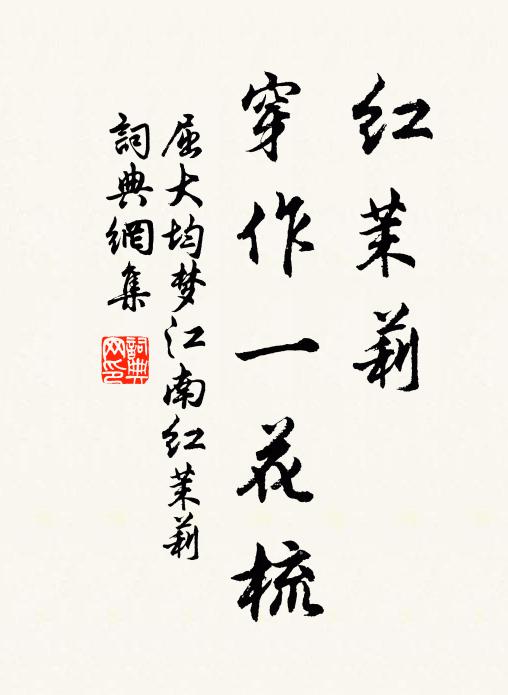 红茉莉
穿作一花梳
屈大均梦江南红茉莉
詞典網集
詞典
网印